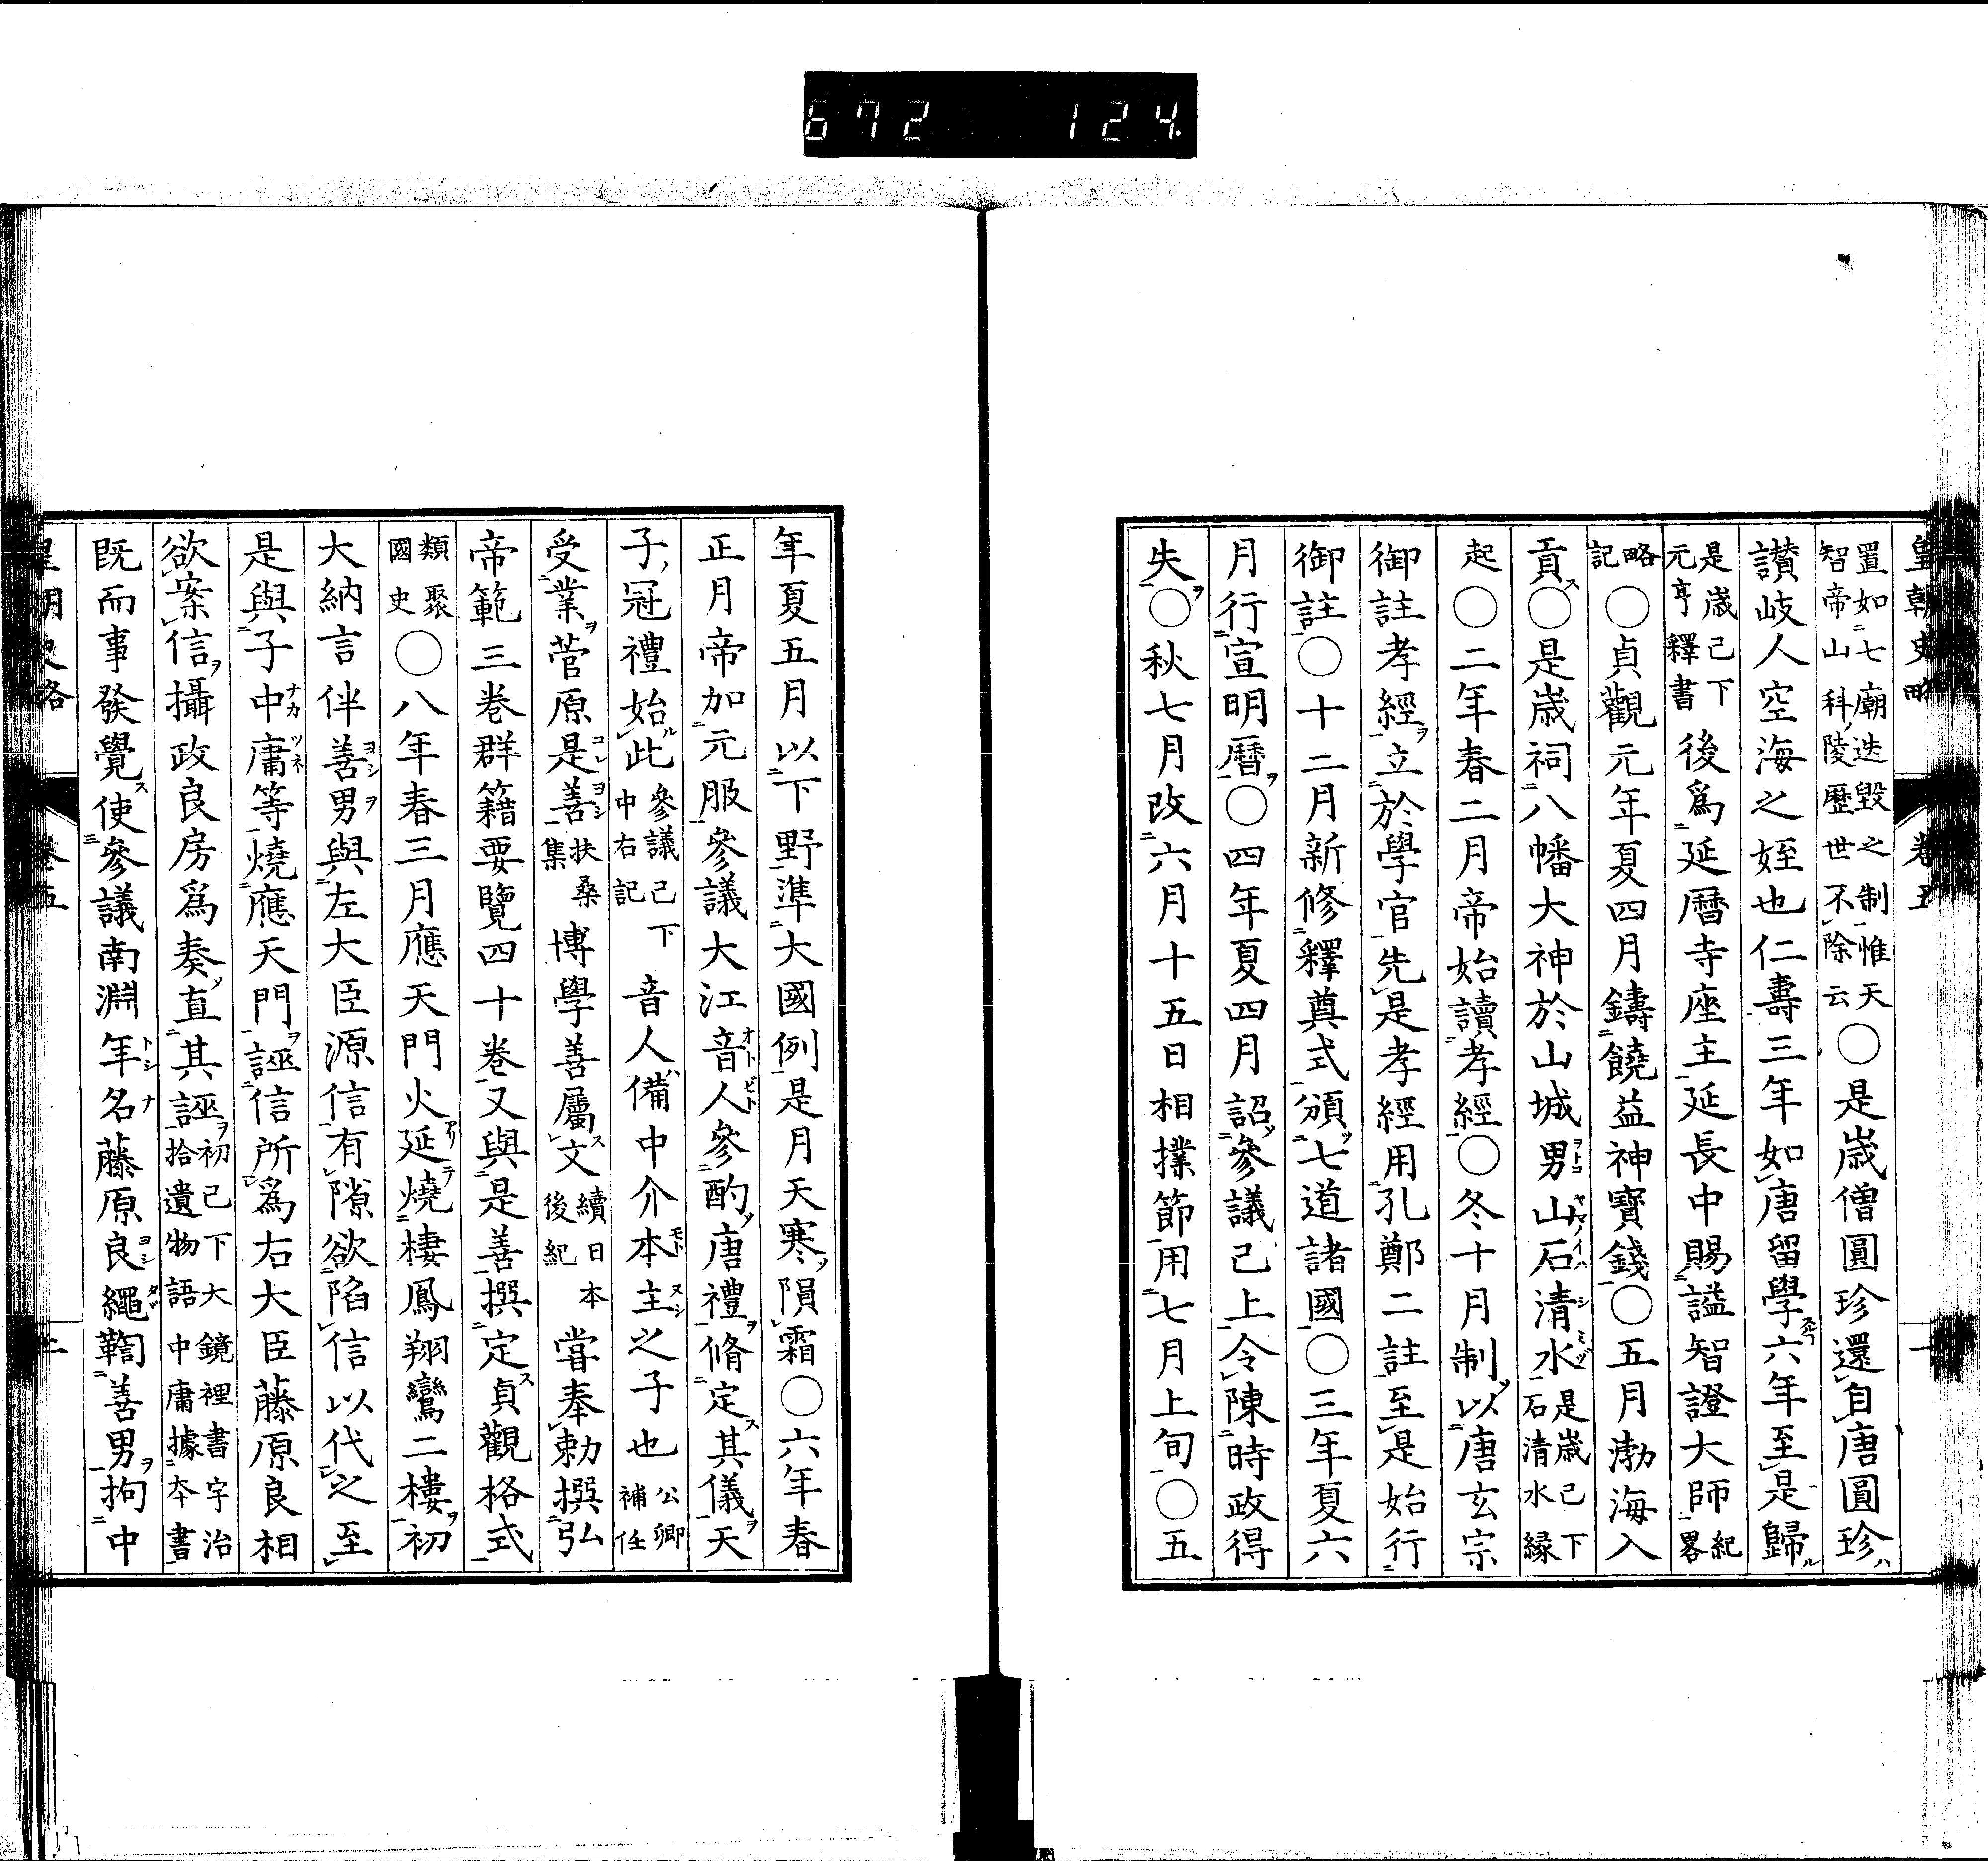 672 124
皇朝史略 卷五
置如七廟迭毀之制惟天智帝山科陵歷世不除云○是歲僧圓珍還自唐圓珍ハ
讃岐人空海之姪也仁壽三年如唐留學六年至是歸ル
是歲已下元亨釋書後爲延曆寺座主延長中賜謚智證大師紀畧
略記○貞觀元年夏四月鑄饒益神寶錢○五月渤海入
貢ス○是歲祠八幡大神於山城男山石清水是歲已下石清水緣
起○二年春二月帝始讀孝經○冬十月制以唐玄宗
御註孝經ヲ立於學官先是孝經用孔鄭二註至是始行
御註○十二月新修釋奠式頒七道諸國○三年夏六
月行宣明曆ヲ○四年夏四月詔參議已上令陳時政得
失ヲ○秋七月改六月十五日相撲節用七月上旬○五
年夏五月以下野準大國例是月天寒隕霜○六年春
正月帝加元服參議大江音人參酌唐禮ヲ脩定ス其儀ヲ天
子冠禮始ル此參議已下中右記音人ハ備中介本主之子也公卿補任
受業ヲ菅原是善扶桑集博學善屬ス文續日本後紀嘗奉勅撰弘
帝範三卷群籍要覽四十卷又與是善撰定ス貞觀格式
類聚國史○八年春三月應天門火延燒棲鳳翔鸞二樓ヲ初
大納言伴善男與左大臣源信有隙欲陷信以代之至
是與子中庸等燒應天門ヲ誣信所爲右大臣藤原良相
欲案信ヲ攝政良房爲奏直其誣ヲ初已下大鏡裡書宇治拾遺物語中庸據本書
既而事發覺ス使參議南淵年名藤原良繩鞫善男ヲ拘中
卷五